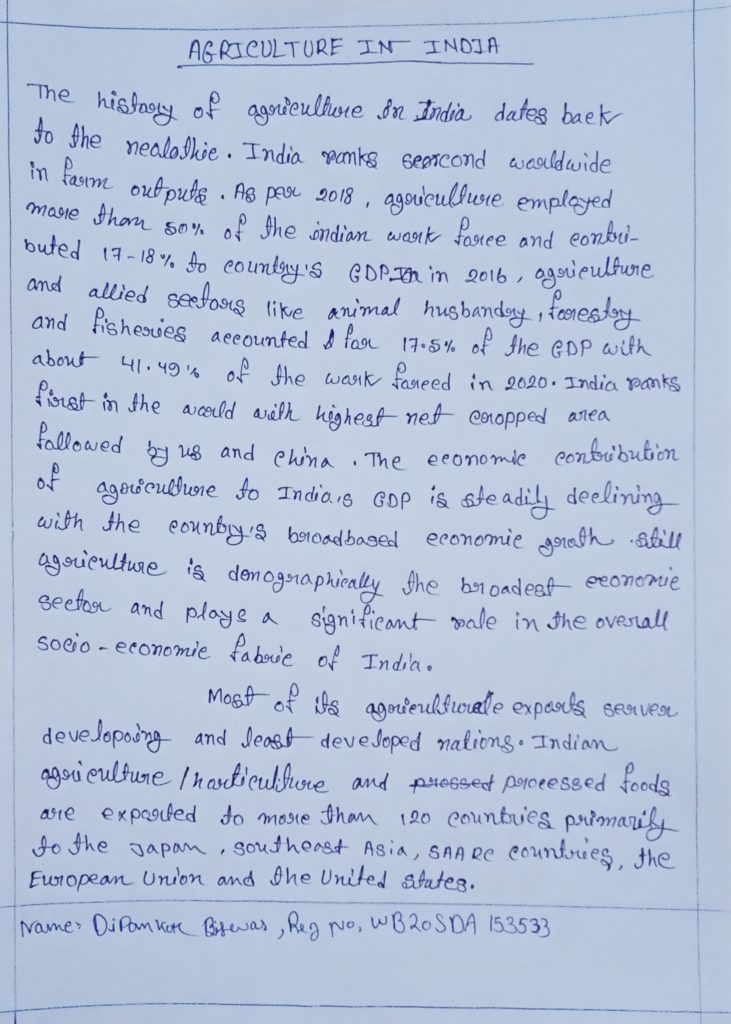 AGRICULTURE IN INDIA
The history of agriculture in India dates back
to the nealathie. India ranks seorcond waaldwide
in farm outputs. As per 2018, agriculture employed
more than 50% of the indian work force and contri-
buted 17-18% to country's GDP In in 2016, agriculture
and allied sectors like animal husbandry, forestry
and fisheries accounted for 17.5% of the GDP with
about 41.49% of the work foreed in 2020. India ranks
first in the world with highest net cropped area
followed by us and China. The economic contribution
of agriculture to India's GDP is steadily declining
with the country's broadbased economic groath. still
agriculture is demographically the broadest economic
sector and plays a significant role in the overall
socio-economic fabric of India.
Most of its agriculturale exports server
developoing and least developed nations. Indian
agriculture/horticulture and prossed processed foods
are exported to more than 120 countries primarily
to the Japan, southeast Asia, SAARC countries, the
European Union and the United states.
Name: Dipankar Biswas, Reg No. WB20SDA 153533